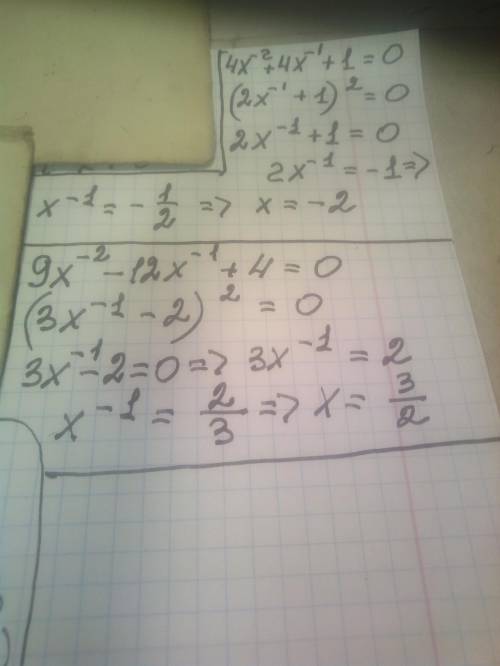 4x⁻²+4x⁻¹+1=0
(2x⁻¹+1)²=0
2x⁻¹+1=0
2x⁻¹=-1=>
x⁻¹=-1/2 => x=-2
9x⁻²-12x⁻¹+4=0
(3x⁻¹-2)²=0
3x⁻¹-2=0=> 3x⁻¹=2
x⁻¹=2/3=> x=3/2